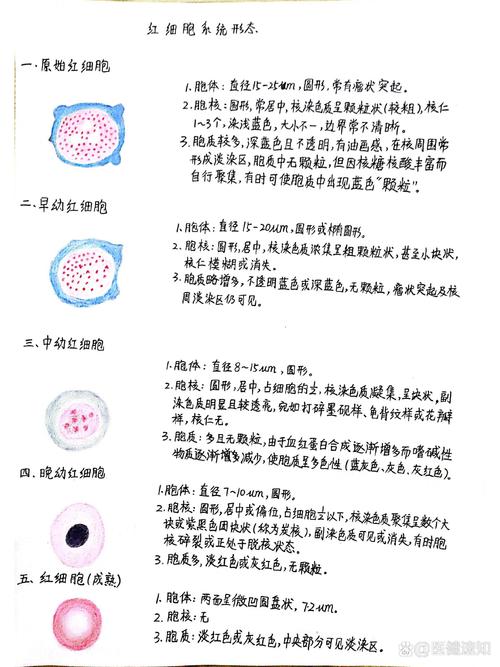 红细胞系统形态.
一.原始红细胞
1.胞体:直径15-25um,圆形,常有瘤状突起。
2.胞核:圆形,常居中,核染色质呈颗粒状(较粗),核仁
1~3个,染浅蓝色,大小不一,边界常不清晰。
3.胞质较多,深蓝色且不透明,有油画感,在核周围常
形成淡染区,胞质中无颗粒,但因核糖核酸丰富而
自行聚集,有时可使胞质中出现蓝色“颗粒”。
二.早幼红细胞
1.胞体:直径15-20um,圆形或椭圆形。
2.胞核:圆形,居中,核染色质浓集呈粗颗粒状,甚至小块状,
核仁模糊或消失。
3.胞质略增多,不透明蓝色或深蓝色,无颗粒,瘤状突起及核
周淡染区仍可见。
三、中幼红细胞
1.胞体:直径8~15um,圆形。
2.胞核:圆形,居中,占细胞的½,核染色质凝集,呈块状,副
染色质明显且较透亮,宛如打碎墨砚样、龟背纹样或花瓣
样,核仁无。
3.胞质:多且无颗粒,由于血红蛋白合成逐渐增多而嗜碱性
物质逐渐增多减少,使胞质呈多色性(蓝灰色、灰色、灰红色)。
四、晚幼红细胞
1.胞体:直径7~10um,圆形。
2.胞核:圆形,居中或偏位,占细胞½以下,核染色质聚集呈数个大
块或紫黑色团块状(称为炭核),副染色质可见或消失,有时胞
核碎裂或正处于脱核状态。
3.胞质多,淡红色或灰红色,无颗粒。
五、红细胞(成熟)
1.胞体:两面呈微凹圆盘状,7.2um.
2.胞核:无
3.胞质:淡红色或灰红色,中央部分可见淡染区。
医健速知